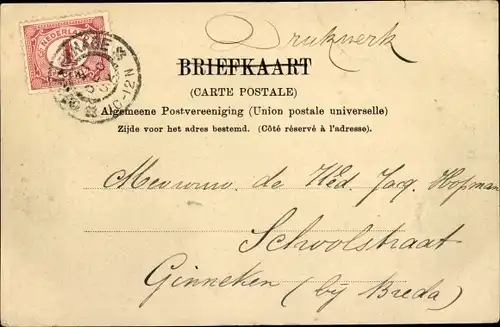 Drukwerk
NEDERLAND
BRIEFKAART
(CARTE POSTALE)
Algemeene Postvereeniging (Union postale universelle)
Zijde voor het adres bestemd. (Côté réservé à l'adresse).
Mevrouw de Wed. Jacq. Hopman
Schoolstraat
Ginneken (bij Breda)